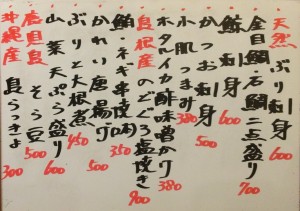 天然 ぶり刺身 600
金目鯛・石鯛 二点盛り 700
鯨刺身 600
かつお刺身 500
小肌つまみ 380
ホタルイカ酢味噌かけ 380
島根産のどぐろ塩焼き 900
鮪ネギ串焼 350
かれい唐揚げ 500
ぶりと大根煮 450
山菜天ぷら盛り 600
鹿児島 そら豆 500
沖縄産 島らっきょ 300